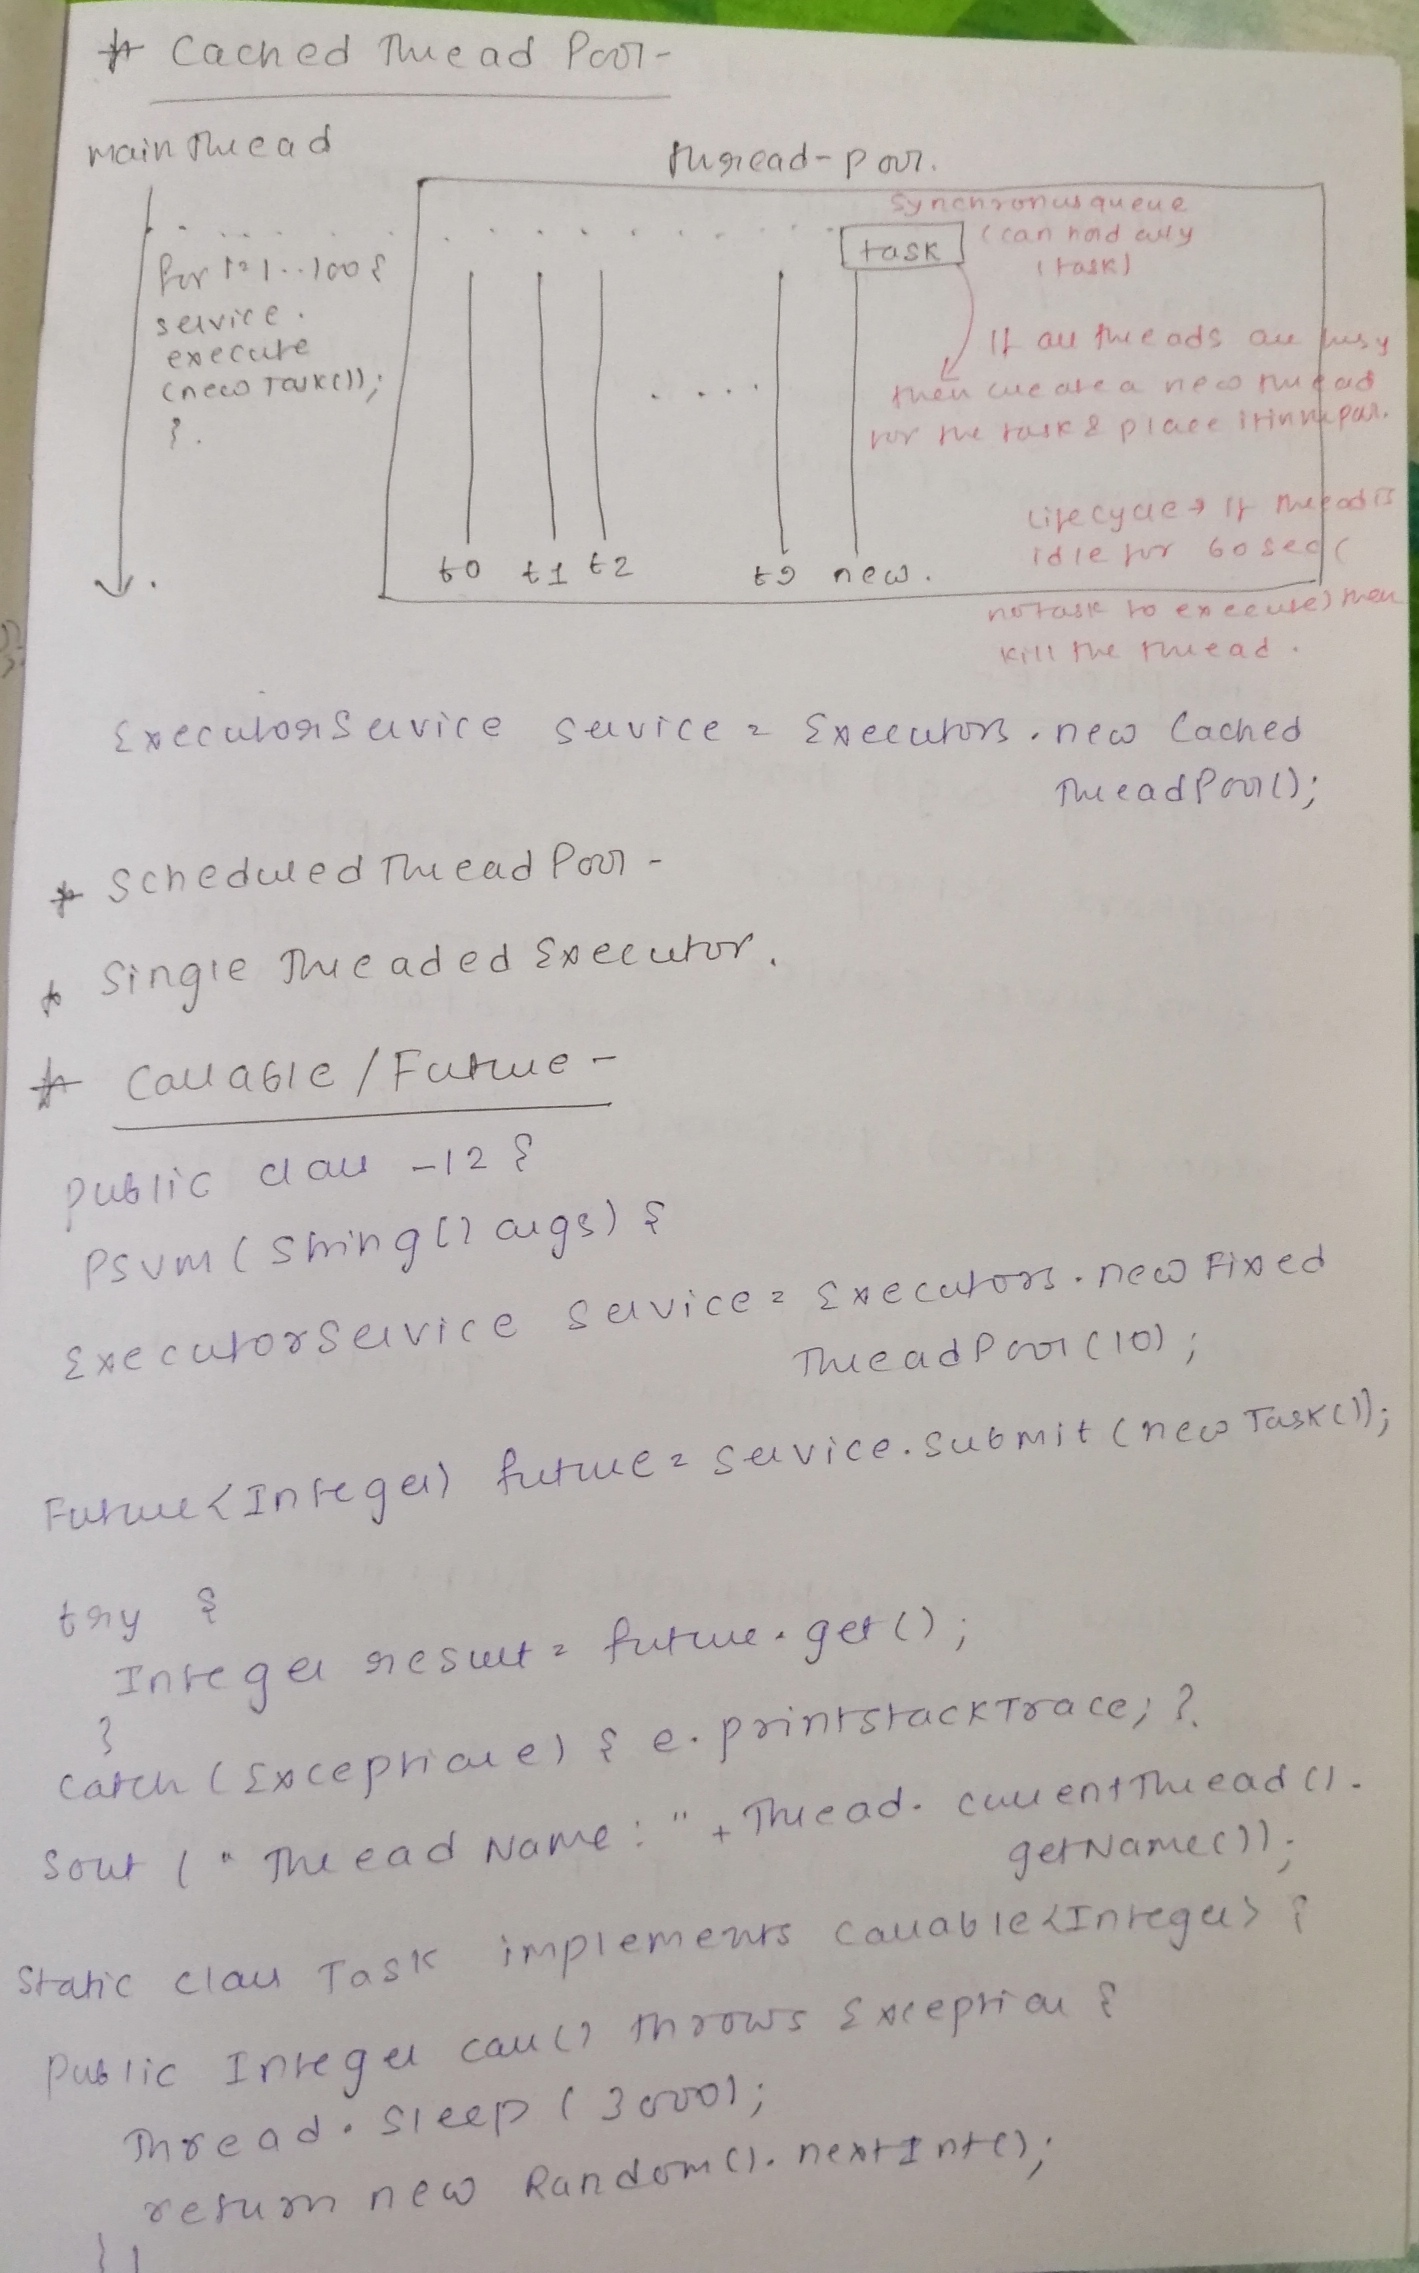 * Cached Thread Pool-
main thread
thread-pool.
synchronus queue
(can hold only
1 task)
task
for i=1..100 {
service.
execute
(new Task());
}.
If all threads are busy
then create a new thread
for the task & place it in the pool.
Lifecycle → If thread is
idle for 60 sec (
no task to execute) then
kill the thread.
t0 t1 t2 t9 new.
ExecutorService service = Executors.new Cached
ThreadPool();
* Scheduled Thread Pool -
* Single Threaded Executor.
* Callable / Future -
public class -12 {
PSVM (String[] args) {
ExecutorService service = Executors.new Fixed
ThreadPool (10);
Future<Integer) future = service.submit (new Task());
try {
Integer result = future.get();
}
catch (Exception e) { e.printstackTrace; }.
Sout (" Thread Name: " + Thread. currentThread().
getName());
Static class Task implements Callable<Integer> {
Public Integer call() throws Exception {
Thread.sleep (3000);
return new Random().nextInt();
} }